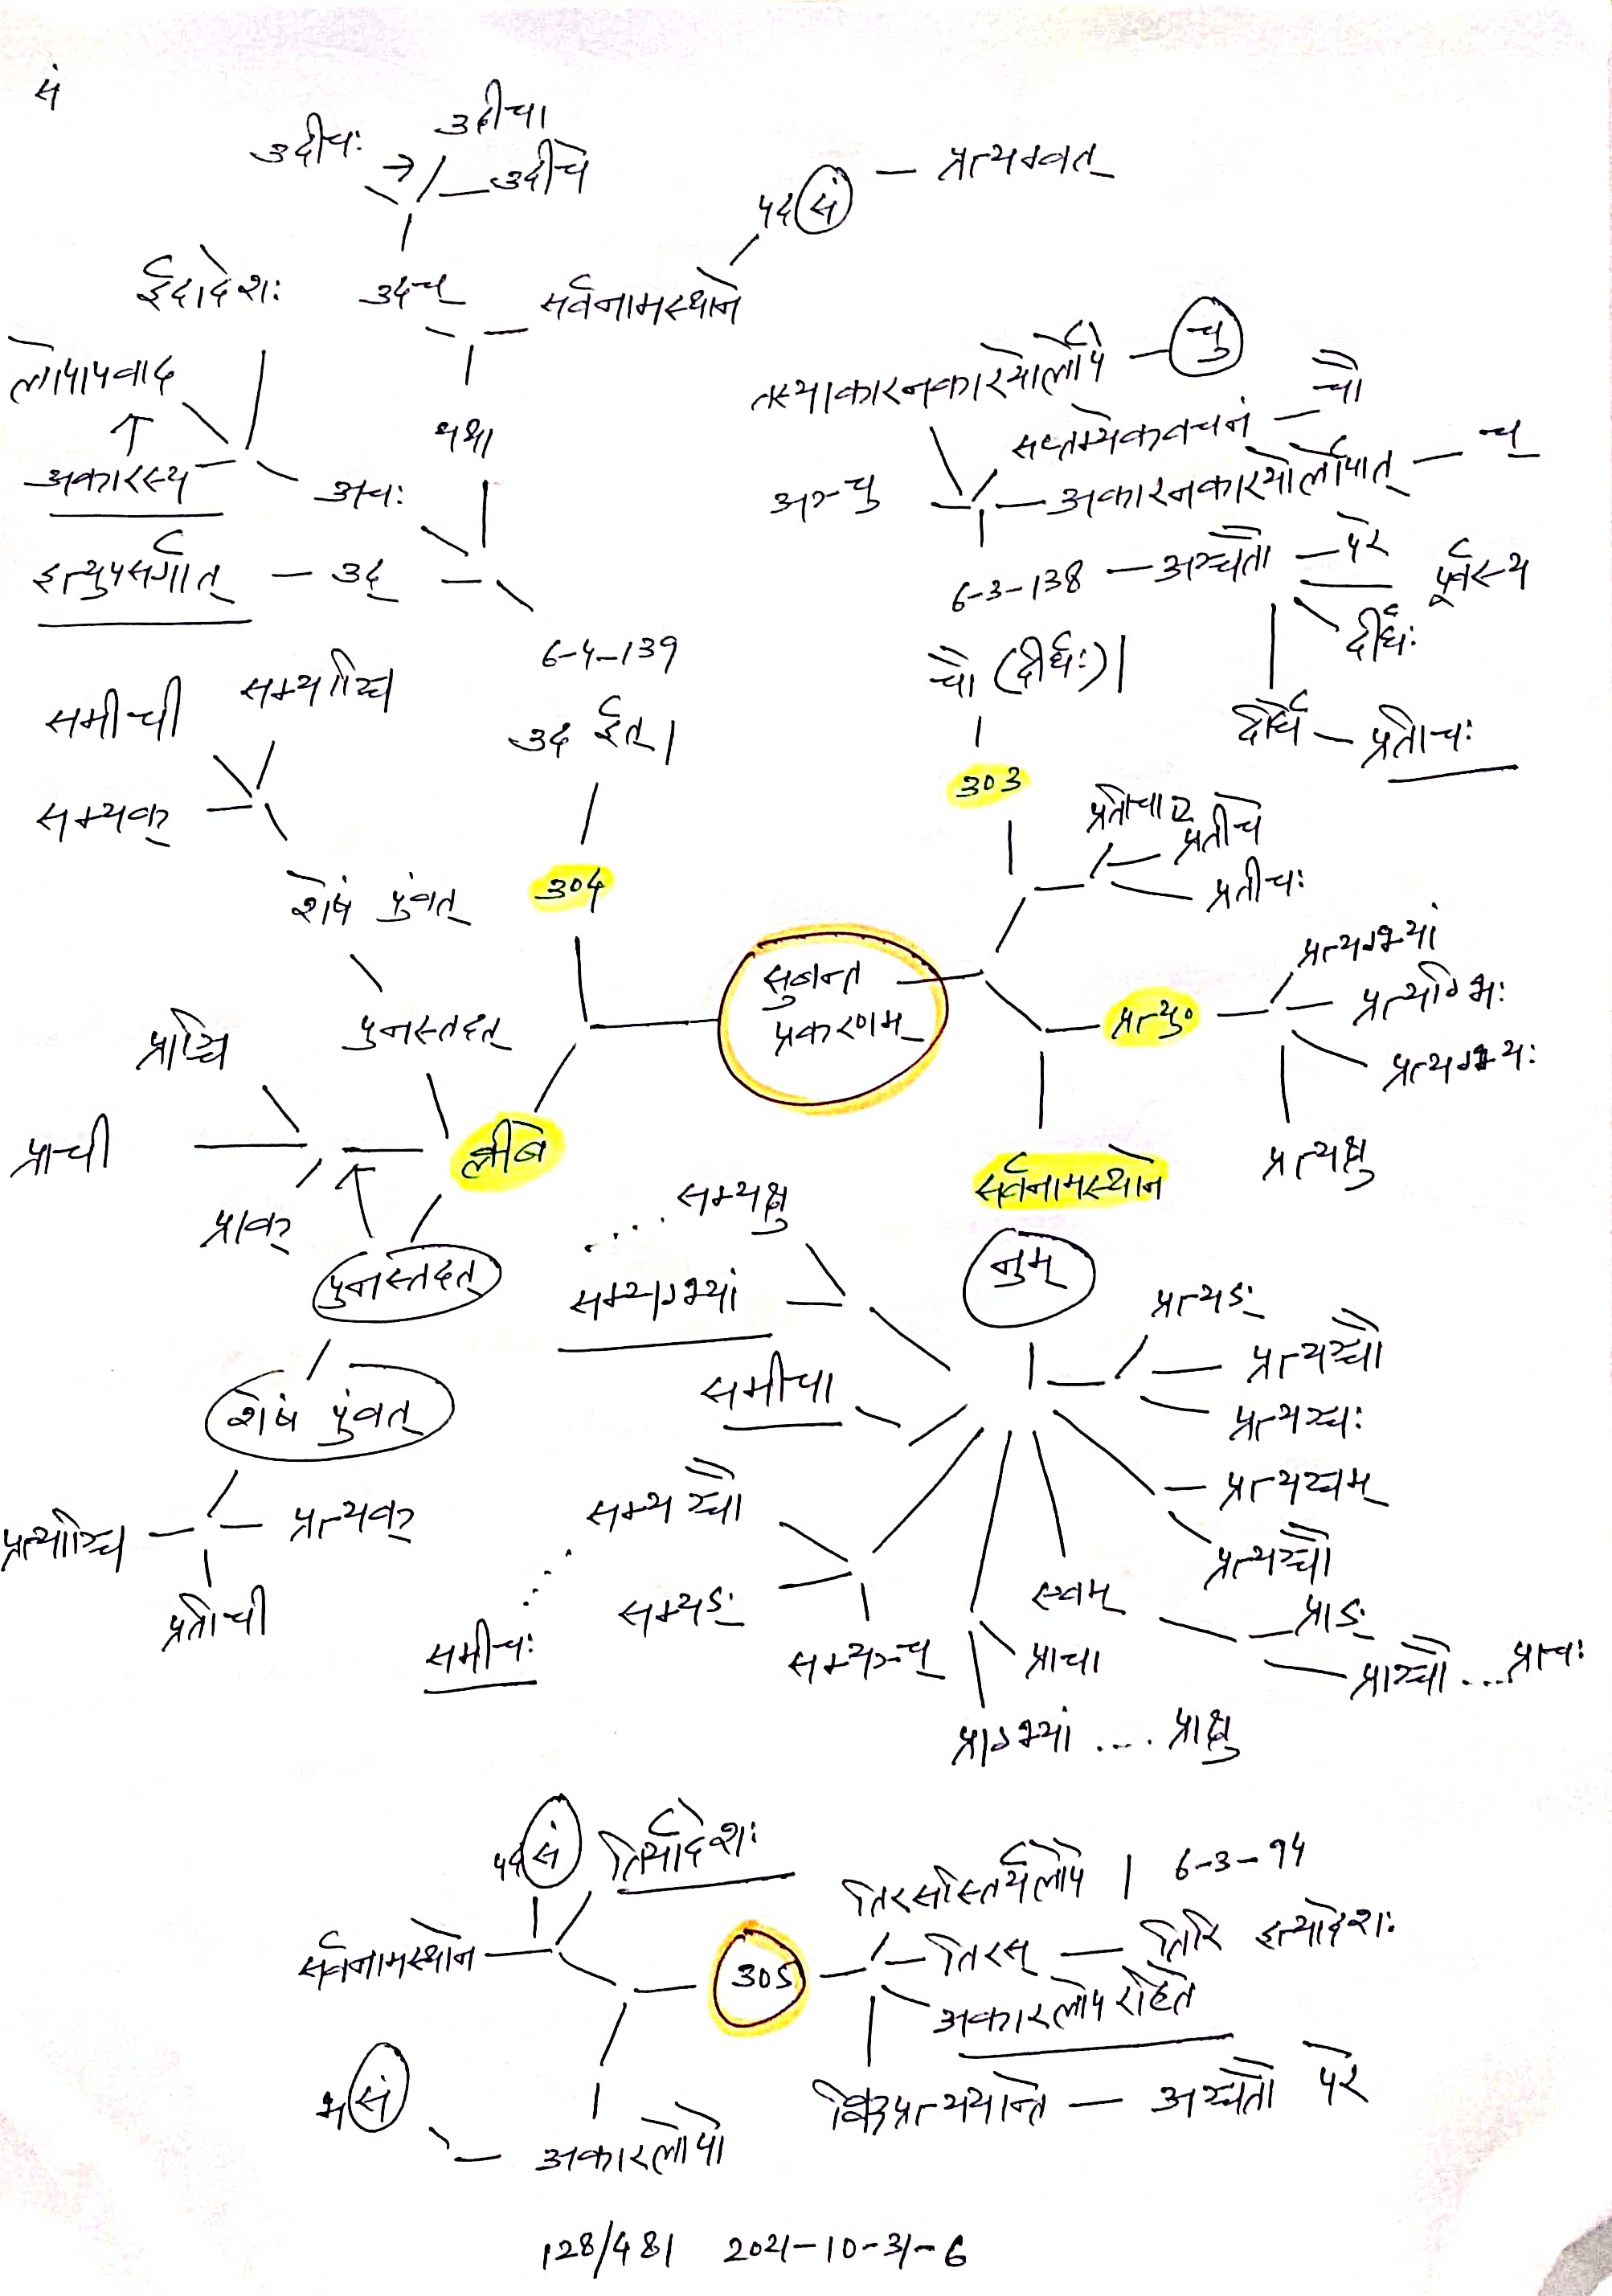 सं
उदीचः
उदीचा
उदीचे
पद सं — प्रत्यग्वत्
ईदादेशः
उदच्
सर्वनामस्थाने
लोपापवाद
अकारस्य
अचः
यथा
इत्युपसर्गात् — उद्
6-4-139
उद ईत्।
304
तस्याकारनकारयोर्लोपे — चु
सप्तम्येकवचनं — चौ
अञ्चु
अकारनकारयोर्लोपात् — च्
6-3-138 — अञ्चतौ — परे
पूर्वस्य
दीर्घः
चौ (दीर्घः)।
दीर्घे — प्रतीचः
303
प्रतीचा
प्रतीचे
प्रतीचः
समीची
सम्यञ्चि
सम्यक्
शेषं पुंवत्
पुनस्तद्वत्
सुबन्त
प्रकरणम्
प्रत्यु०
प्रत्यग्भ्यां
प्रत्यग्भिः
प्रत्यग्भ्यः
प्रत्यक्षु
प्राञ्चि
प्राची
प्राक्
क्लीबे
पुनस्तद्वत्
शेषं पुंवत्
प्रत्यञ्चि
प्रत्यक्
प्रतीची
सर्वनामस्थाने
नुम्
प्रत्यङ्
प्रत्यञ्चौ
प्रत्यञ्चः
प्रत्यञ्चम्
प्रत्यञ्चौ
सम्यक्षु
सम्यग्भ्यां
समीचा
सम्यञ्चौ
सम्यङ्
समीचः
सम्यञ्च्
प्राचा
प्राग्भ्यां .... प्राक्षु
प्राङ्
प्राञ्चौ .... प्राचः
पद सं
तिर्यादेशः
सर्वनामस्थाने
305
तिरसस्तिर्यलोपे । 6-3-94
तिरस् — तिरि इत्यादेशः
अकारलोप रहिते
क्विप्रत्ययान्ते — अञ्चतौ परे
भ सं
अकारलोपो
128/481 2021-10-31-6